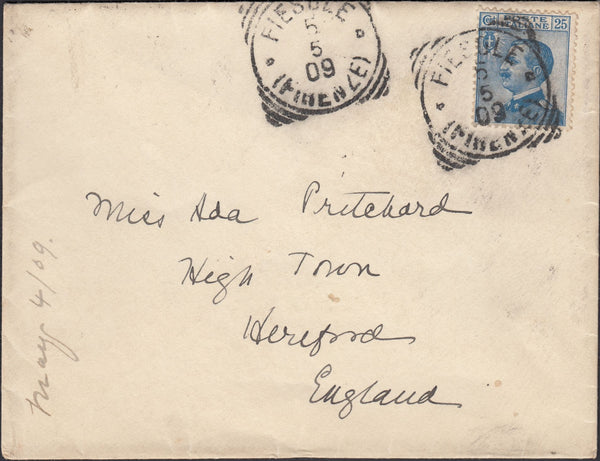 FIESOLE
5
5
09
(FIRENZE)
POSTE
ITALIANE
25
FIESOLE
5
5
09
(FIRENZE)
Miss Ada Pritchard
High Town
Hereford
England
May 4/09.